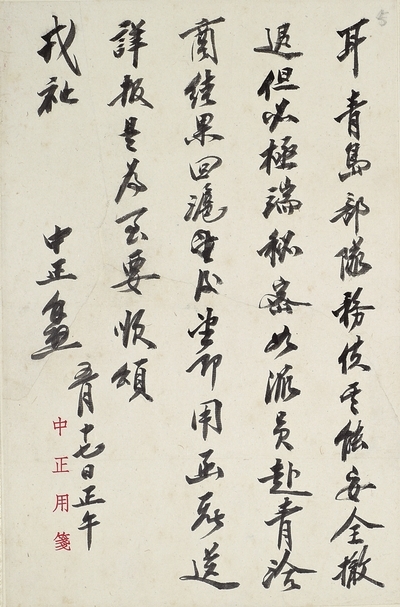 5
耳青島部隊務使其能安全撤
退但必極端秘密如派員赴青洽
商結果回滬望即用函飛送
詳報是為至要順頌
戎祉
中正
五月十七日正午
中正用箋